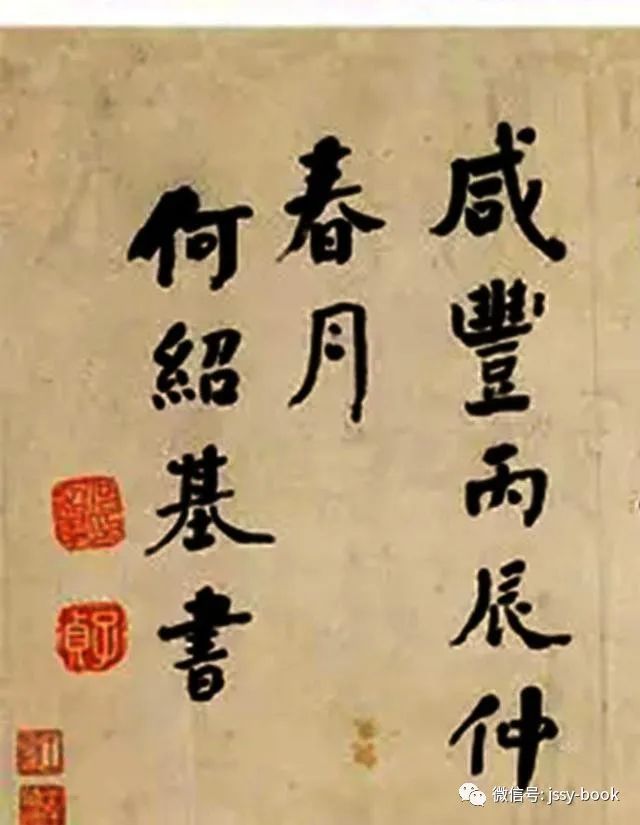 咸豐丙辰仲
春月
何紹基書
子貞
微信号: jssy-book